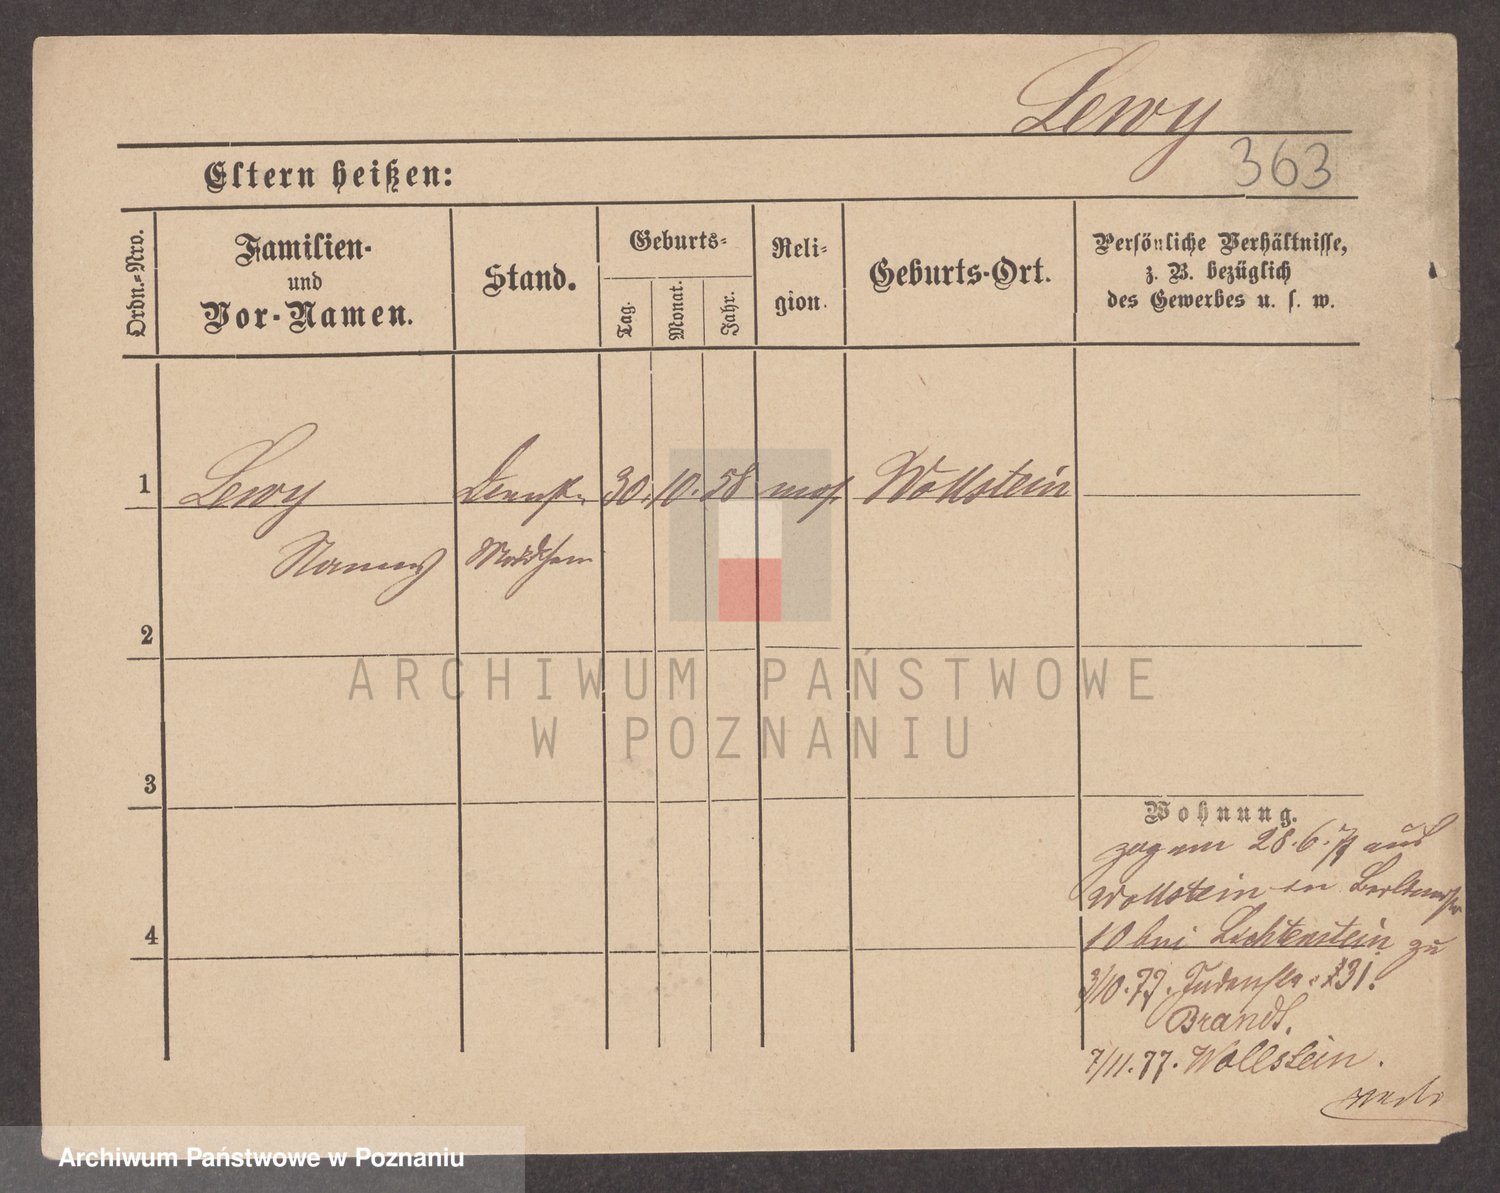 Lewy
363
Eltern heißen:
Ordn.=Nro.
Familien-
und
Vor-Namen.
Stand.
Geburts-
Tag.
Monat.
Jahr.
Reli-
gion.
Geburts-Ort.
Persönliche Verhältnisse,
z. B. bezüglich
des Gewerbes u. s. w.
1 Lewy Dienst- 30. 10. 58 mos. Wollstein
Mädchen
2
3
4
ARCHIWUM PAŃSTWOWE
W POZNANIU
Wohnung.
zog am 28. 6. 77 aus
Wollstein
10 bei Lichtenstein zu
3/10. 77. Judenstr. 31.
Brandt.
7/11. 77. Wollstein.
Archiwum Państwowe w Poznaniu